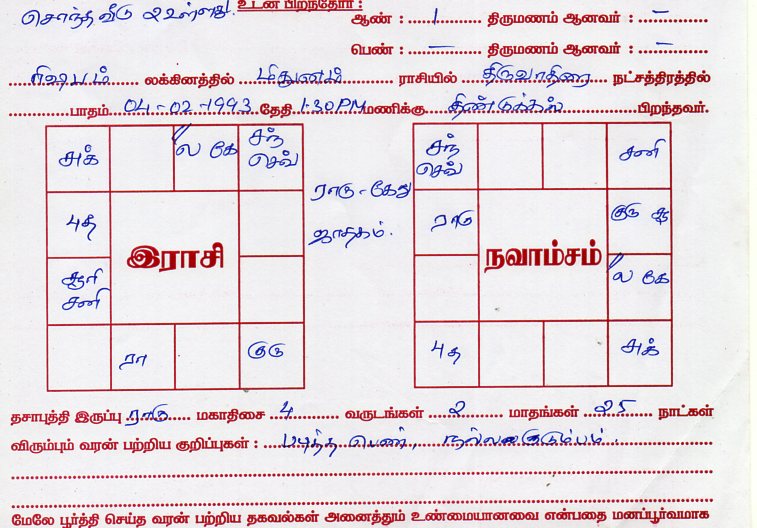 சொந்த வீடு 2 உள்ளது. உடன் பிறந்தோர் :
ஆண் : 1 திருமணம் ஆனவர் : –
பெண் : – திருமணம் ஆனவர் : –
ரிஷபம் லக்கினத்தில் மிதுனம் ராசியில் திருவாதிரை நட்சத்திரத்தில்
பாதம் 04-02-1993 தேதி 1:30 PM மணிக்கு திண்டுக்கல் பிறந்தவர்.
சுக் ல கே சந் செவ்
புத
சூரி சனி
ரா குரு
இராசி
ராகு - கேது
ஜாதகம்.
சந் செவ் சனி
ராகு குரு சூ
ல கே
புத சுக்
நவாம்சம்
தசாபுத்தி இருப்பு ராகு மகாதிசை 4 வருடங்கள் 2 மாதங்கள் 25 நாட்கள்
விரும்பும் வரன் பற்றிய குறிப்புகள் : படித்த பெண், நல்ல குடும்பம்.
மேலே பூர்த்தி செய்த வரன் பற்றிய தகவல்கள் அனைத்தும் உண்மையானவை என்பதை மனப்பூர்வமாக